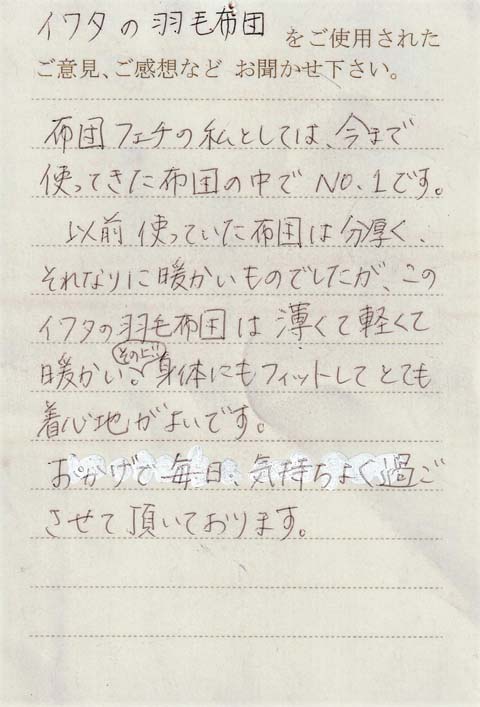 イワタの羽毛布団 をご使用された
ご意見、ご感想など お聞かせ下さい。
布団フェチの私としては、今まで
使ってきた布団の中でNO.1です。
以前使っていた布団は分厚く、
それなりに暖かいものでしたが、この
イワタの羽毛布団は薄くて軽くて
暖かい。その上!!身体にもフィットしてとても
着心地がよいです。
おかげで毎日、気持ちよく過ご
させて頂いております。